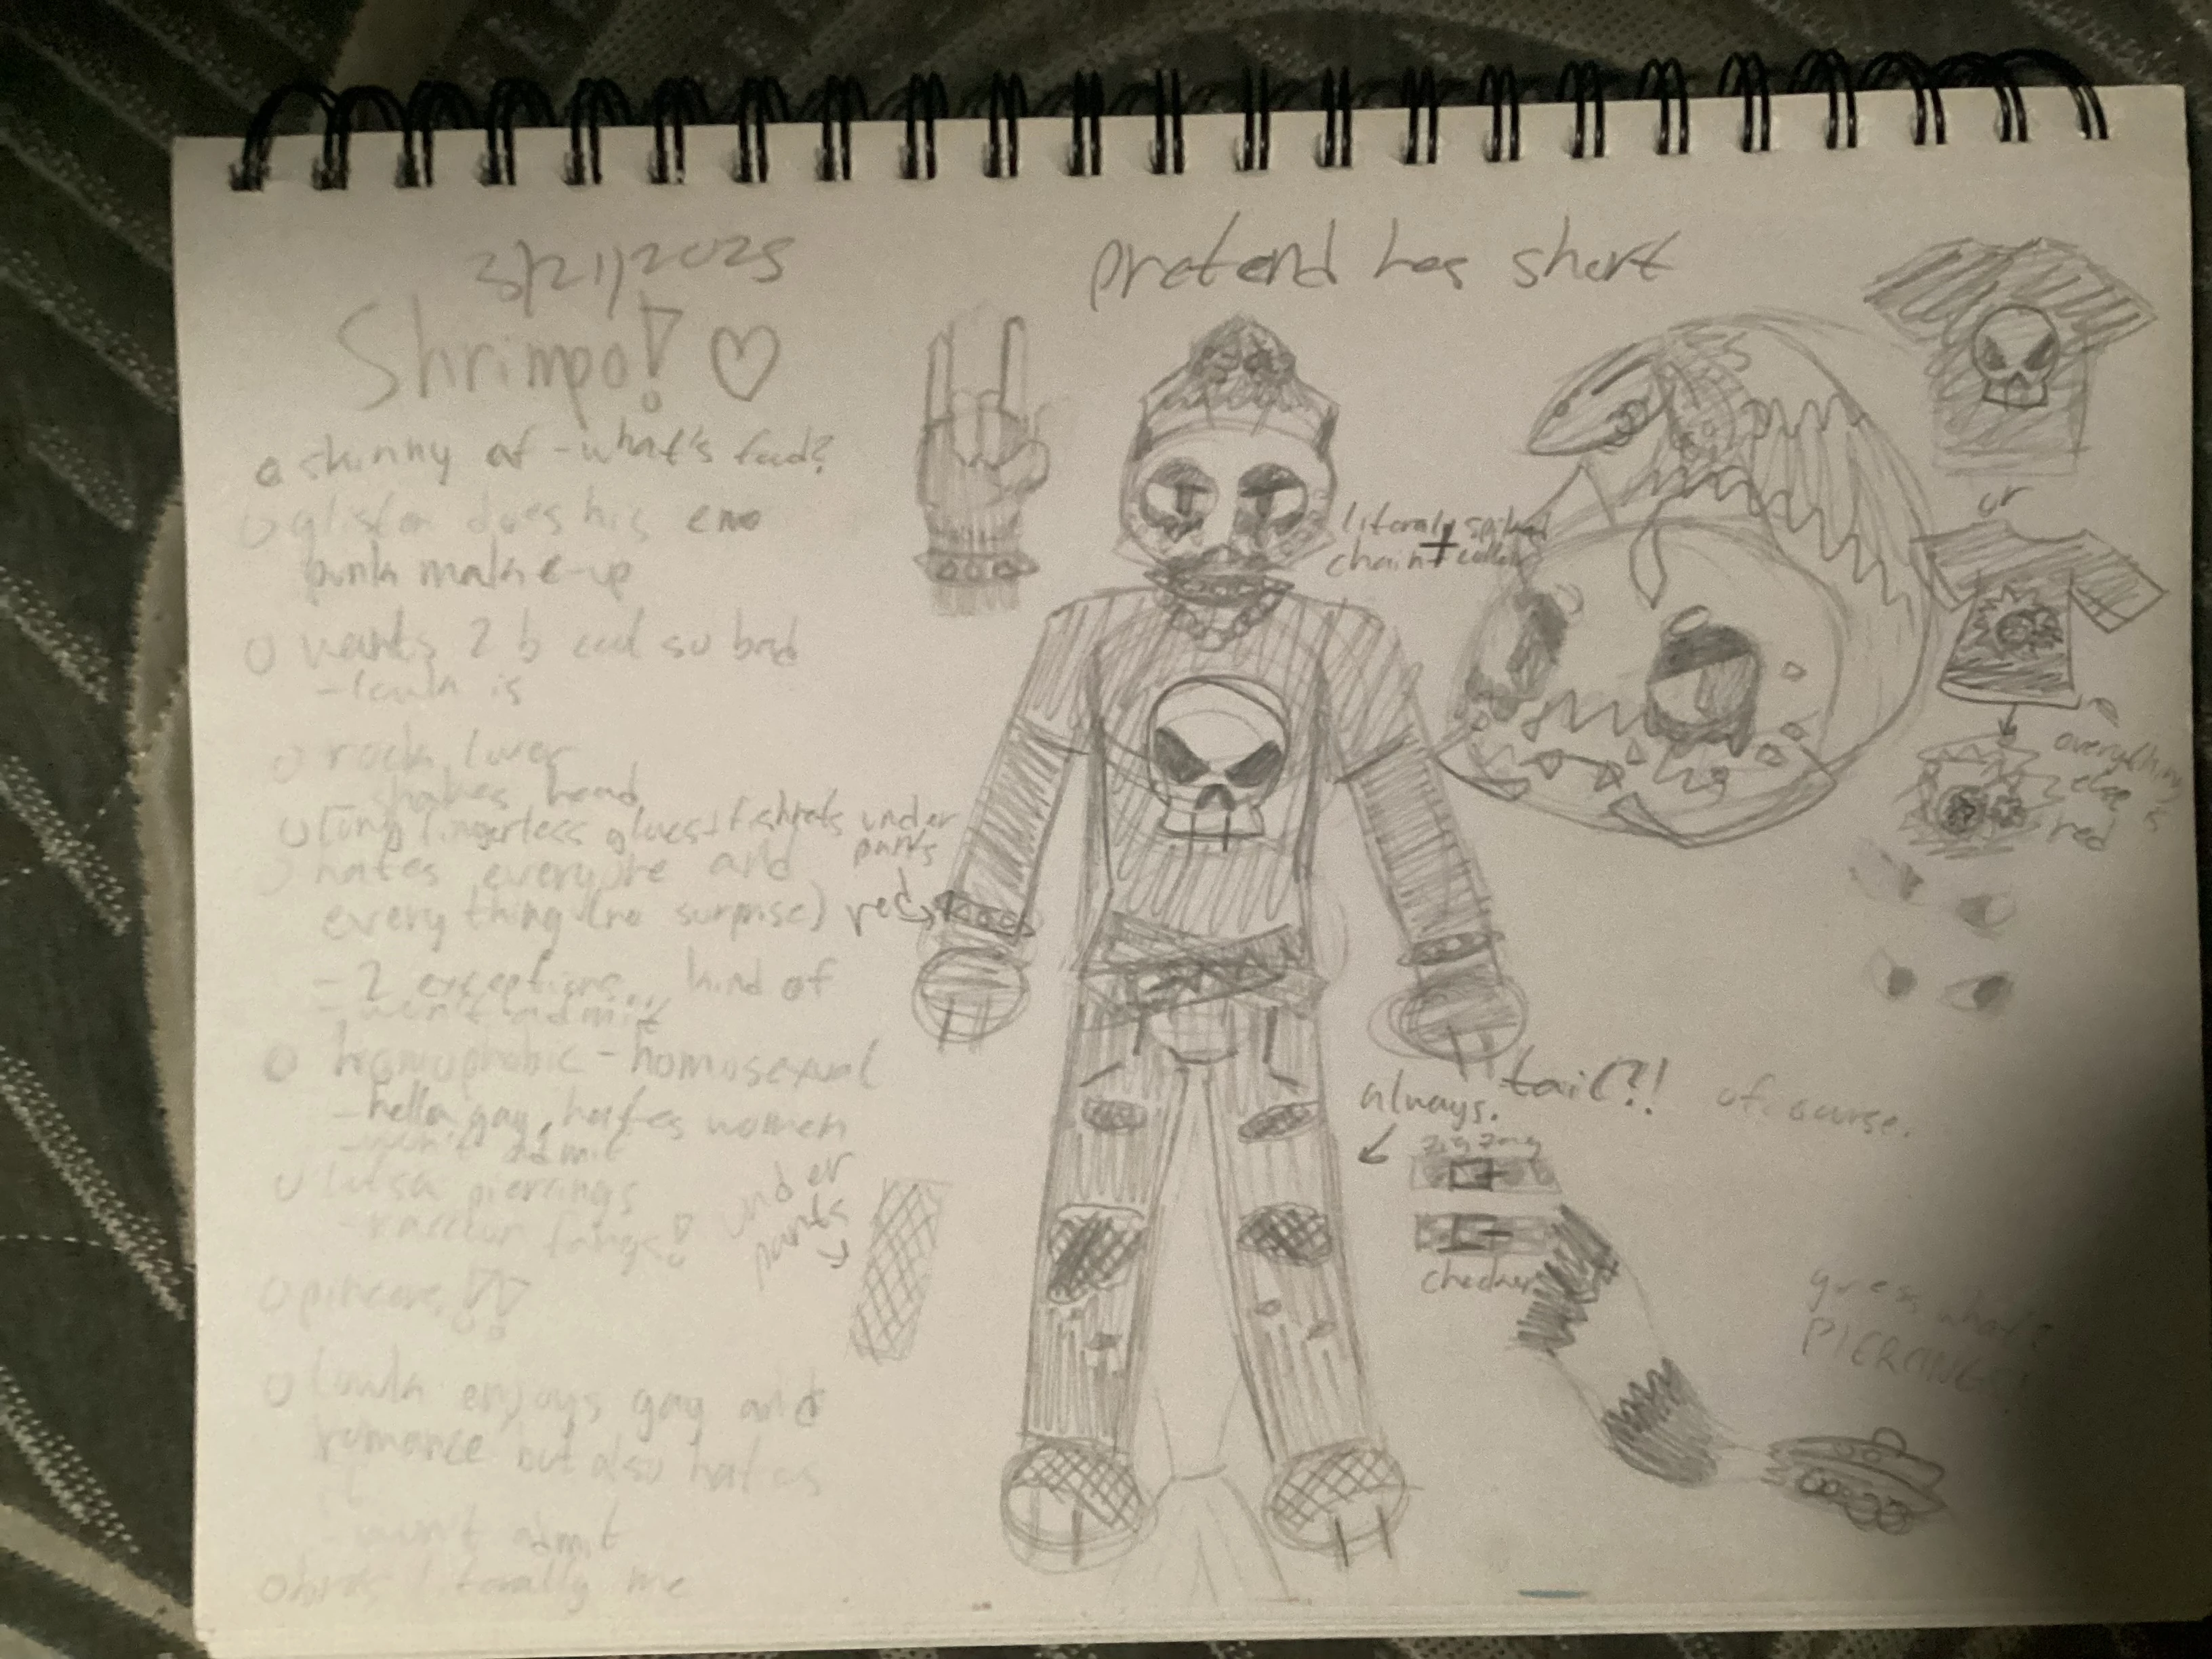 3/21/2025
Shrimpo! ♡
pretend has shirt
skinny af - what's food?
glisten does his emo
punk make-up
wants 2 b cool so bad
- lowk is
rock lover
shakes head
long fingerless gloves + fishnets under
pants
hates everyone and
everything (no surprise)
red
- 2 exceptions, kind of
- won't admit
homophobic - homosexual
- hella gay, hates women
- won't admit
piercings
fangs!
under
pants
lowk enjoys gay and
romance but also hates
it
- won't admit
literally me
literaly spiked
chain + collar
or
everything
else is
red
always. tail?! of course.
zigzag
checker
guess what?
PIERCINGS!